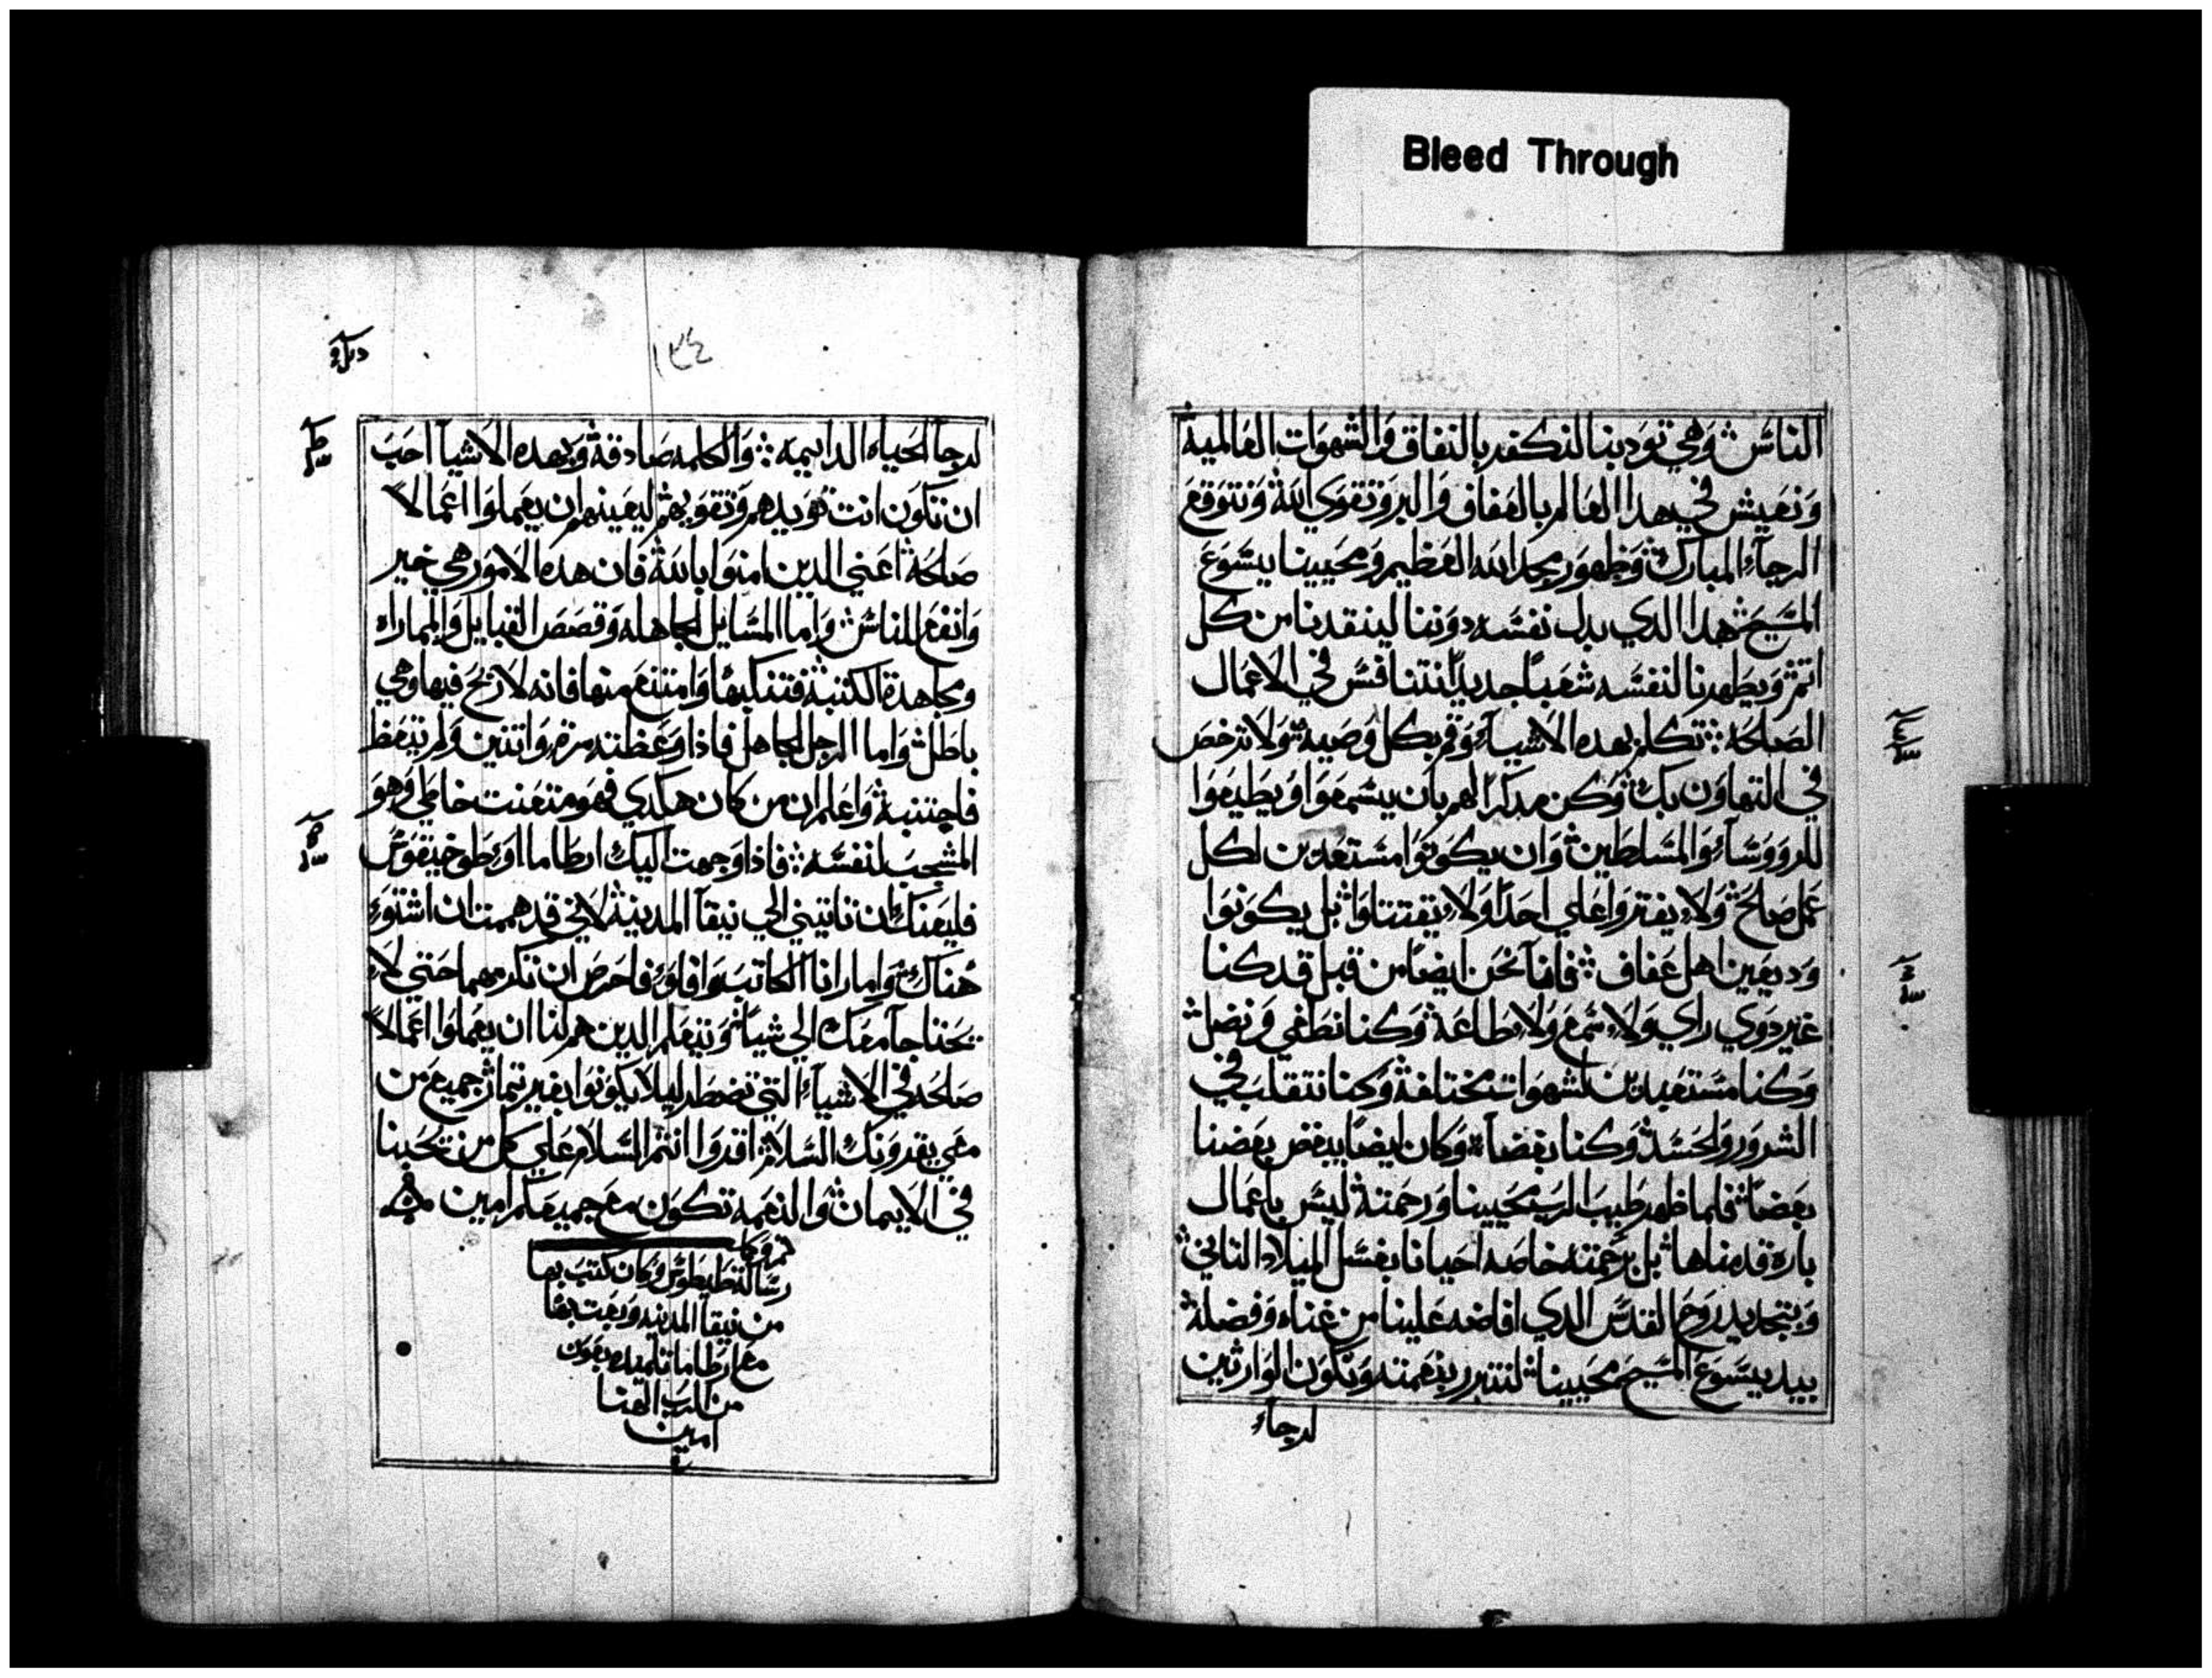 Bleed Through
الناس وهي تودبنا لنكفر بالنفاق والشهوات العالمية
ونعيش في هدا العالم بالعفاف والبر وتقوي الله ونتوقع
الرجآء المبارك وظهور مجد الله العظيم ومحيينا يسوع
المسيح هدا الدي بدل نفسه دوننا لينقدنا من كل
اثم ويطهرنا لنفسه شعباً جديداً نتنافس في الاعمال
الصالحه تكلم بهده الاشيآء وقم بكل وصيه ولا ترخص
في التهاون بك وكن مدكراً لهم بان يسمعوا ويطيعوا
للرووسآء والمسلطين وان يكونوا مستعدين لكل
عمل صالح ولا يفتروا علي احداً ولا يقتتلوا بل يكونوا
وديعين اهل عفاف فاننا نحن ايضاً من قبل قد كنا
غير دوي راي ولا سمع ولا طاعة وكنا نطغي ونضل
وكنا مستعبدين لشهوات مختلفة وكنا نتقلب في
الشرور والحسد وكنا بغضآ وكان ايضاً يبغض بعضنا
بعضاً فلما ظهر طيب الرب محيينا ورحمته ليس باعمال
باره قدمناها بل برحمته خاصه احيانا بغسل الميلاد التاني
وبتجديد روح القدس الدي افاضه علينا من غناه وفضله
بيد يسوع المسيح محيينا لنتبرر بنعمته ونكون الوارثين
لرجاء
١٣٤
لرجآ الحياه الدايمه والكلمه صادقة وبهده الاشيآ احب
ان تكون انت تويدهم وتقويهم ليعينهم ان يعملوا اعمالاً
صالحة اعني الدين امنوا بالله فان هده الامور هي خير
وانفع للناس واما المسايل الجاهله وقصص القبايل والمماراه
ومجاهدة الكتبة فتنكبها وامتنع منها فانه لا ربح فيها وهي
باطل واما الرجل الجاهل فادا وعظته مرة واتنتين ولم يتعظ
فاجتنبه واعلم ان من كان هكدي فهو متعنت خاطي وهو
المشجب لنفسه فادا وجهت اليك ارطاما او طوخيقوس
فليعنك ان تاتيني الي نيقآ المدينة لاني قد هممت ان اشتوي
هناك واما رانا الكاتب وافلو فاحرص ان تكرمهما حتي لا
يحتاجا معك الي شياً ويتعلم الدين هم لنا ان يعملوا اعمالاً
صالحه في الاشيآء التي تضطر ليلا يكونوا بغير تمار جميع من
معي يقرونك السلام اقروا انتم السلام علي كل من يحبنا
في الايمان والنعمه تكون مع جميعكم امين
رسالة طيطوس وكان كتب بها
من نيقا المدينه وبعت بها
مع ارطاما تلميده بعون
من الرب الهنا
امين